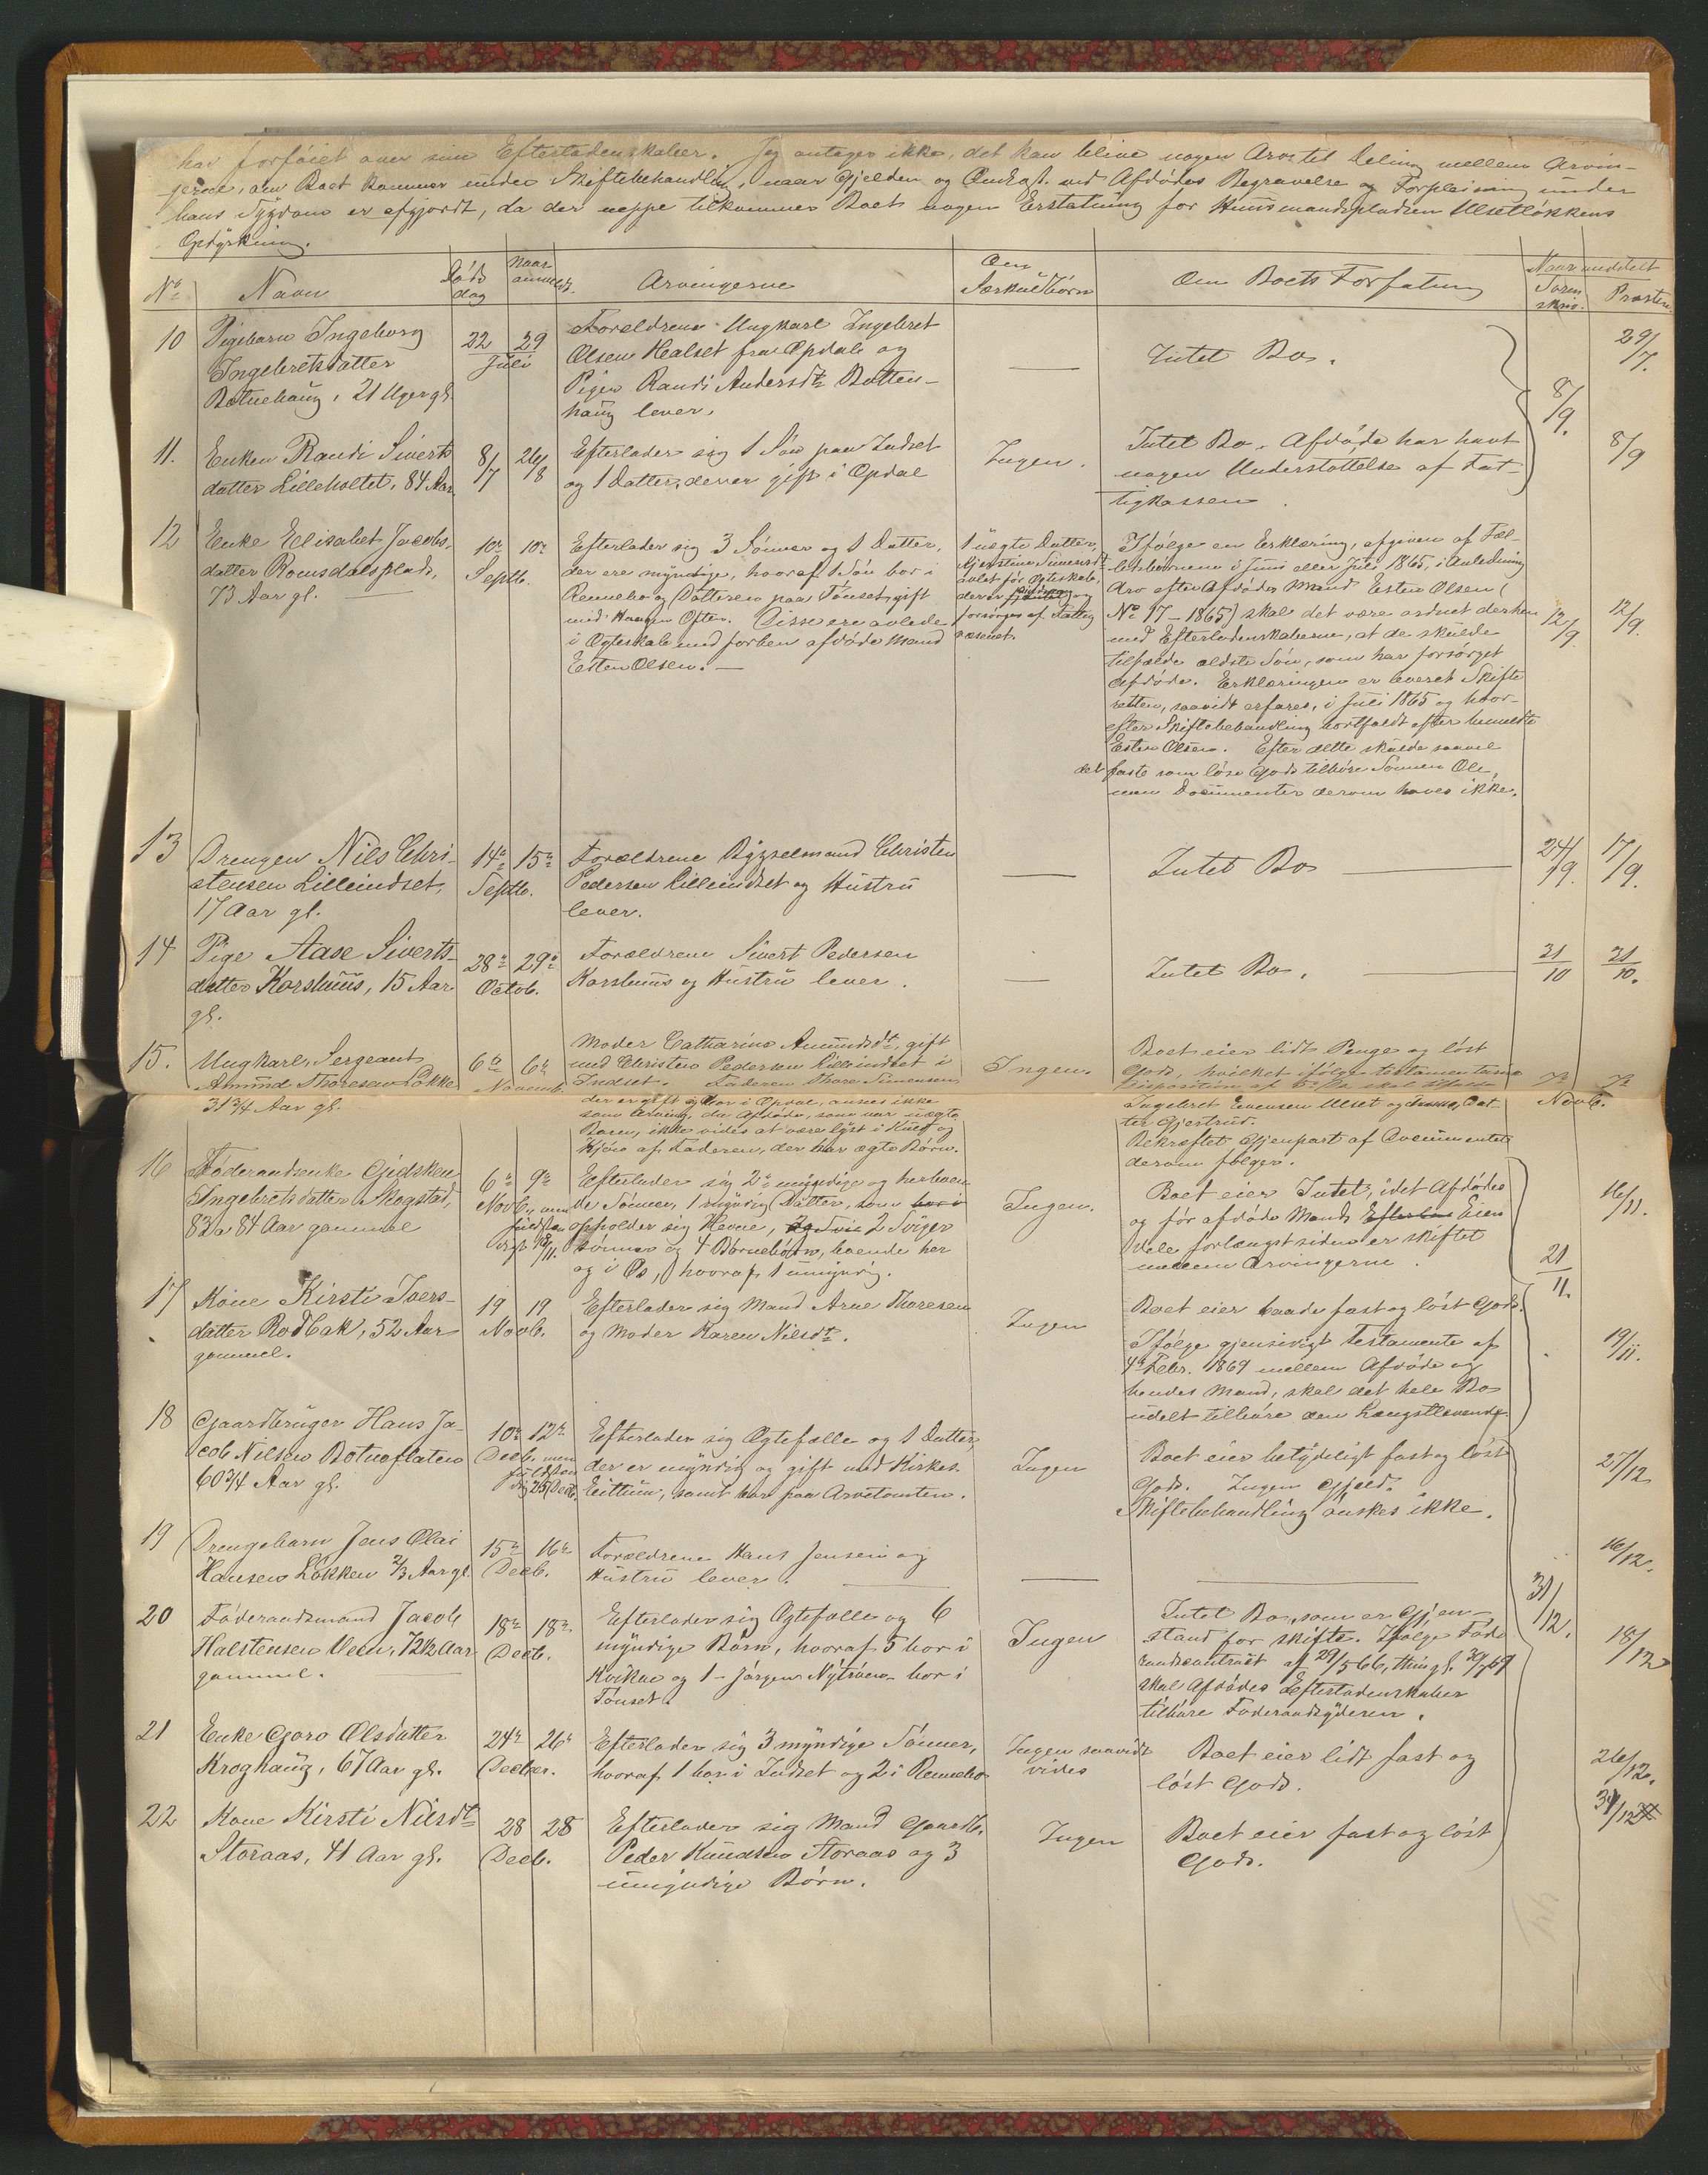 har forføiet over sine Efterladenskaber. Jeg antager ikke, det kan blive nogen Arv til Deling mellem Arvin-
gerne, om Boet kommer under Skiftebehandling, naar Gjelden og Omkost. ved Afdødes Begravelse og Forpleining under
hans Sygdom er afgjordt, da der neppe tilkommer Boet nogen Erstatning for Huusmandspladsen Ulsetløkkens
Opdyrkning.
No Navn Døds dag Naar anmeldt. Arvingerne Om Særkuldbørn Om Boets Forfatning Naar meddelt Soren skriv. Præsten
10 Pigebarn Ingeborg
Ingebretsdatter
Botnehaug, 21 Uger gl.
22 29
Juli
Forældrene Ungkarl Ingebret
Olsen Healset fra Opdal og
Pigen Randi Andersdtr Botten-
haug lever.
—
Intet Bo.
8/9.
29/7.
11. Enken Randi Siverts
datter Lilleholtet, 84 Aar
8/7 26/8
Efterlader sig 1 Søn paa Indset
og 1 Datter, der er gift i Opdal
Ingen.
Intet Bo. Afdøde har havt
nogen Understøttelse af Fat-
tigkassen.
8/9
12 Enke Elisabet Jacobs-
datter Romsdalsplads,
73 Aar gl.
10de 10de
Septb.
Efterlader sig 3 Sønner og 1 Datter,
der ere myndige, hvoraf 1 Søn bor i
Rennebo og Datteren paa Tønset, gift
med Haagen Ofter. Disse ere avlede
i Ægteskab med forhen afdøde Mand
Esten Olsen. —
1 uægte Datter,
Simensdtr
avlet før Ægteskab,
der er og
forsørges af Fattig
væsenet.
Ifølge en Erklæring, afgiven af Fæl-
lesbørnene i Juni eller Juli 1865, i Anledning
Arv efter Afdødes Mand Esten Olsen (
No 17 – 1865) skal det være ordnet derhen
med Efterladenskaberne, at de skulde
tilfalde ældste Søn, som har forsørget
Afdøde. Erklæringen er leveret Skifte
retten, saavidt erfares, i Juli 1865 og hvor-
efter Skiftebehandling bortfaldt efter bemeldte
Esten Olsen. Efter dette skulde saavel
det faste som løse Gods tilhøre Sønnen Ole,
men Documenter derom haves ikke.
12/9. 12/9.
13 Drengen Nils Chri-
stensen Lilleindset,
17 Aar gl.
14de 15de
Septb.
Forældrene Bygselmand Christen
Pedersen Lilleindset og Hustru
lever.
—
Intet Bo —
24/9. 17/9.
14 Pige Aase Siverts-
datter Korshuus, 15 Aar
gl.
28de 29de
Octob.
Forældrene Sivert Pedersen
Korshuus og Hustru lever.
—
Intet Bo. —
31/10 31/10.
15. Ungkarl, Sergeant
Amund Thoresen Løkke
31 3/4 Aar gl.
6te 6te
Novemb.
Moder Catharine Amundsdtr, gift
med Christen Pedersen Lilleindset i
Indset. Faderen Thore Simensen
der er gift og bor i Opdal, anses ikke
som Arving, da Afdøde, som var uægte
Barn, ikke vides at være lyst i Kuld og
Kjøn af Faderen, der har ægte Børn.
Ingen.
Boet eier lidt Penge og løst
Gods, hvilket ifølge testamentarisk
Disposition af skal tilfalde
Ingebret Evensen Ulset og Dat-
ter Gjertrud.
Bekræftet Gjenpart af Documentet
derom følger.
Novb.
16 Føderaadsenke Gjedsken
Ingebretsdatter Skogstad,
83 a 84 Aar gammel
6te 9de
Novb.,
18/11.
Efterlader sig 2de myndige og herboen
de Sønner, 1 myndig Datter, som bor i
opholder sig Hevne, 2 Sviger
sønner og 4 Børnebørn, boende her
og i Os, hvoraf 1 umyndig.
Ingen.
Boet eier Intet, idet Afdødes
og før afdøde Mands Eien
dele forlængst siden er skiftet
mellem Arvingerne.
21/11.
16/11.
17 Kone Kirsti Ivers-
datter Rødbak, 52 Aar
gammel.
19 19
Novb.
Efterlader sig Mand Arne Thoresen
og Moder Karen Nilsdtr.
Ingen
Boet eier baade fast og løst Gods.
Ifølge gjensidigt Testamente af
4de Febr. 1869 mellem Afdøde og
hendes Mand, skal det hele Bo
udelt tilhøre den Længstlevende.
19/11.
18 Gaardbruger Hans Ja-
cob Nilsen Botnoflaten
60 3/4 Aar gl.
10de 12te
Decb. men
Efterlader sig Ægtefælle og 1 Datter,
der er myndig og gift med Kirkes.
Eittum, samt bor paa Arvetomten.
Ingen
Boet eier betydeligt fast og løst
Gods. Ingen Gjæld.
Skiftebehandling ønskes ikke.
27/12
19 Drengebarn Jens Olai
Hansen Løkken 2/3 Aar gl.
15de 16de
Decb.
Forældrene Hans Jensen og
Hustru lever.
—
—
16/12.
20 Føderaadsmand Jacob
Halstensen Veen, 72 1/2 Aar
gammel.
18de 18de
Decb.
Efterlader sig Ægtefælle og 6
myndige Børn, hvoraf 5 bor i
Kvikne og 1 – Jørgen Nytrøen – bor i
Tønset.
Ingen
Intet Bo, som er Gjen-
stand for Skifte. Ifølge Føde
raadscontract af 29/5 66, thingl.
skal Afdødes Efterladenskaber
tilhøre Føderaadsyderen.
31/12.
18/12
21 Enke Goro Olsdatter
Kroghaug, 67 Aar gl.
24de 26de
Decbr.
Efterlader sig 3 myndige Sønner,
hvoraf 1 bor i Indset og 2 i Rennebo
Ingen saavidt
vides
Boet eier lidt fast og
løst Gods.
26/12.
22 Kone Kirsti Nilsdtr
Storaas, 41 Aar gl.
28 28
Decb.
Efterlader sig Mand Gaardb.
Peder Knudsen Storaas og 3
umyndige Børn.
Ingen
Boet eier fast og løst
Gods.